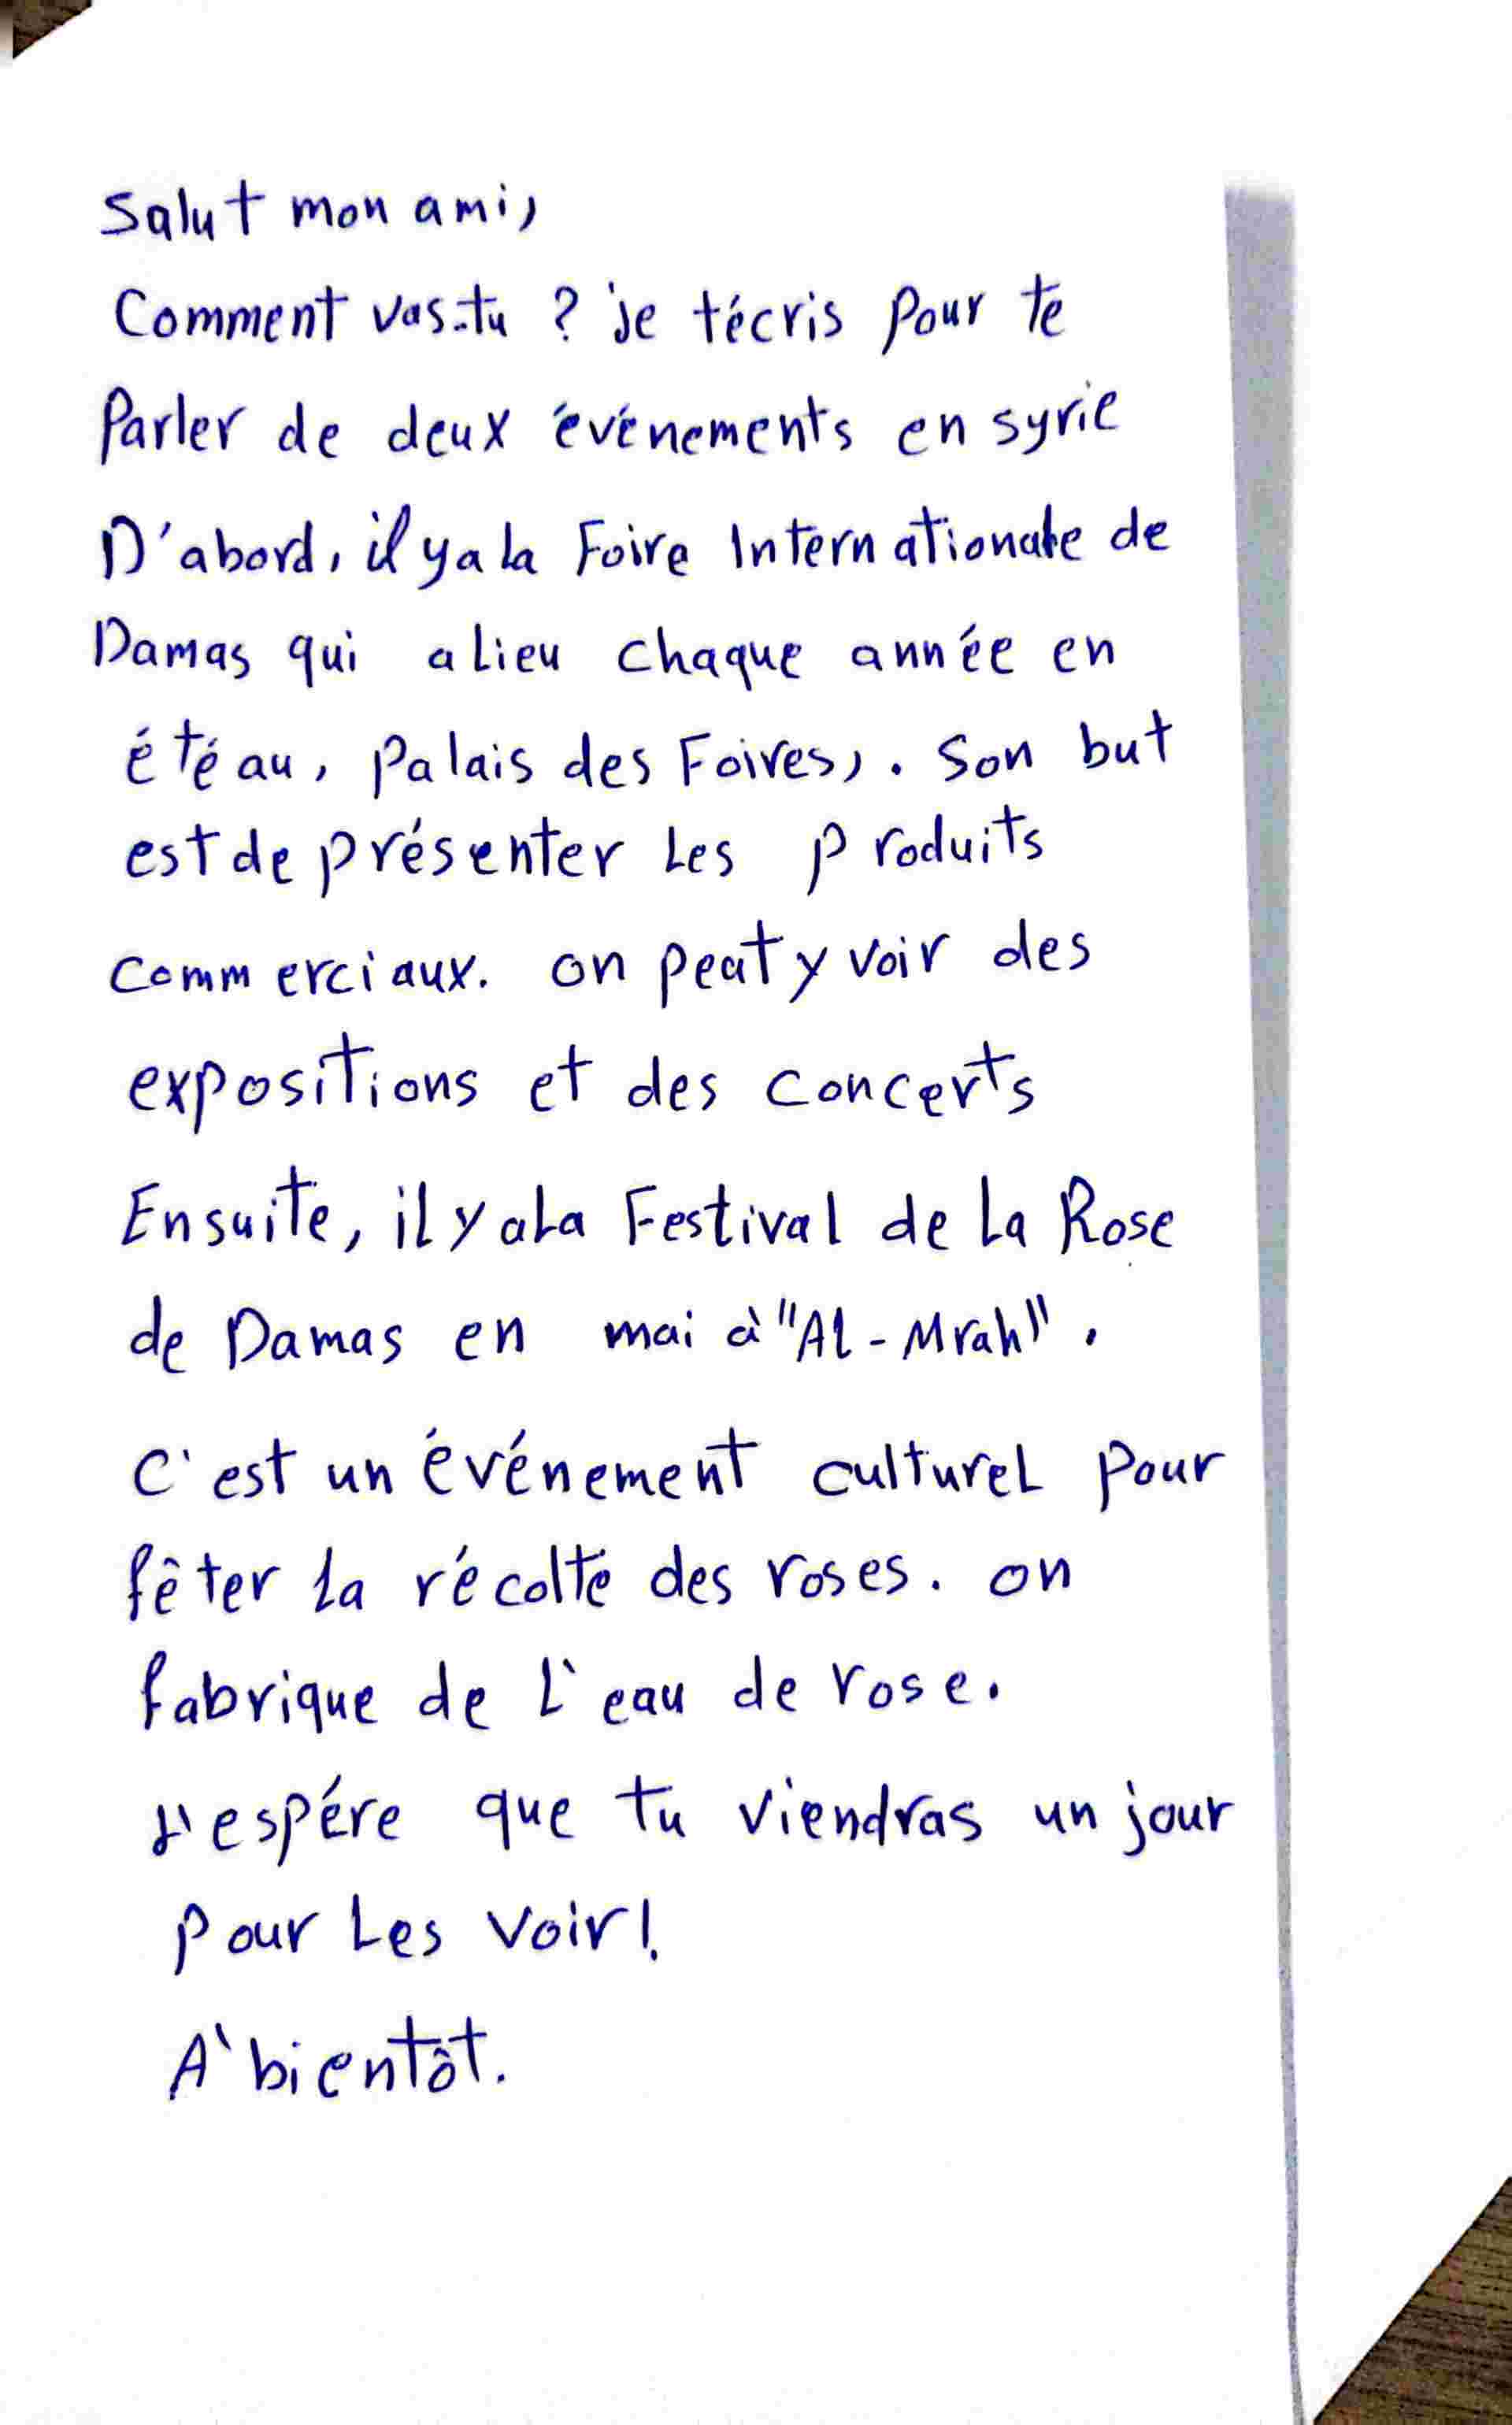 Salut mon ami,
Comment vas-tu ? je técris pour te
Parler de deux événements en syrie
D'abord, il y a la Foire Internationale de
Damas qui a lieu chaque année en
été au, Palais des Foires,. Son but
est de présenter les produits
commerciaux. on peut y voir des
expositions et des concerts
Ensuite, il y a la Festival de la Rose
de Damas en mai à "Al-Mrah".
C'est un événement culturel pour
fêter la récolte des roses. on
fabrique de l'eau de rose.
J'espére que tu viendras un jour
pour les voir!
A'bientôt.